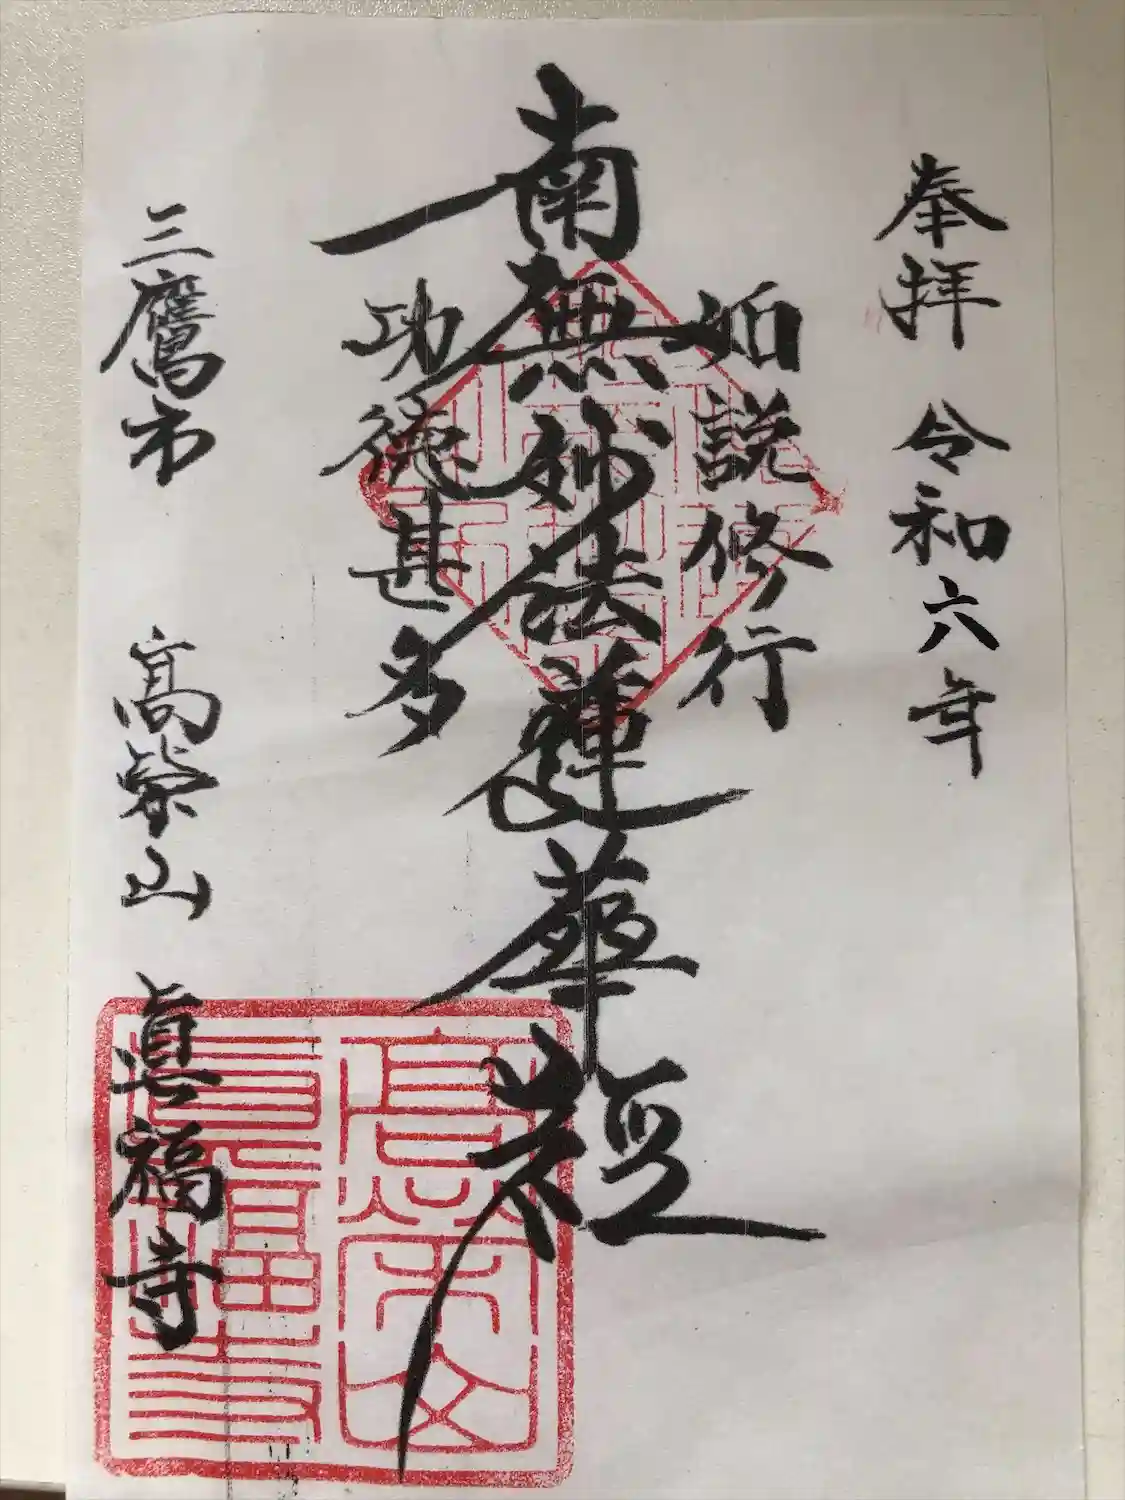 奉拝 令和六年
如説修行
南無妙法蓮華経
功徳甚多
三鷹市 髙榮山 眞福寺